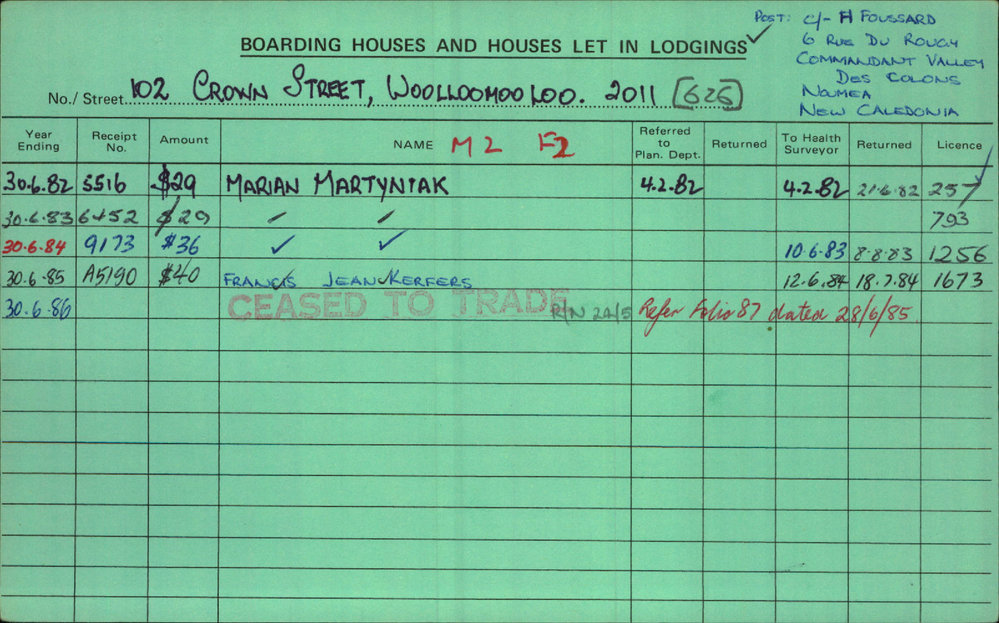 POST: C/- H FOUSSARD
6 RUE DU ROUGY
COMMANDANT VALLEY
DES COLONS
NOUMEA
NEW CALEDONIA
BOARDING HOUSES AND HOUSES LET IN LODGINGS ✓
No./ Street 102 CROWN STREET, WOOLLOOMOOLOO. 2011 [626]
Year Ending Receipt No. Amount NAME M2 F2 Referred to Plan. Dept. Returned To Health Surveyor Returned Licence
30.6.82 5516 $29 MARIAN MARTYNIAK 4.2.82 4.2.82 21.6.82 257 ✓
30.6.83 6452 $29 " " 793
30.6.84 9173 $36 ✓ ✓ 10.6.83 8.8.83 1256
30.6.85 A5190 $40 FRANCIS JEAN KERFERS 12.6.84 18.7.84 1673
30.6.86 CEASED TO TRADE R/N 2A/5 Refer Folio 87 dated 28/6/85.